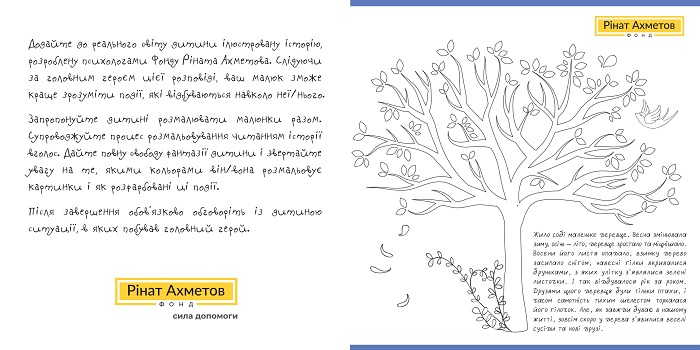 Додайте до реального світу дитини ілюстровану історію,
розроблену психологами Фонду Ріната Ахметова. Слідуючи
за головним героєм цієї розповіді, ваш малюк зможе
краще зрозуміти події, які відбуваються навколо неї/нього.
Запропонуйте дитині розмалювати малюнки разом.
Супроводжуйте процес розмальовування читанням історії
вголос. Дайте повну свободу фантазії дитини і звертайте
увагу на те, якими кольорами він/вона розмальовує
картинки і як розфарбовані ці події.
Після завершення обов'язково обговоріть із дитиною
ситуації, в яких побував головний герой.
Рінат Ахметов
ФОНД
сила допомоги
Рінат Ахметов
ФОНД
Жило собі маленьке деревце. Весна змінювала
зиму, осінь – літо, деревце зростало та міцнішало.
Восени його листя опадало, взимку дерево
засипало снігом, навесні гілки вкривалися
бруньками, з яких улітку з'явилися зелені
листочки. І так відбувалося рік за роком.
Друзями цього деревця були тільки птахи, і
часом самотність тихим шелестом торкалася
його гілочок. Але, як завжди буває в нашому
житті, зовсім скоро у дерева з'явилися веселі
сусіди та нові друзі.